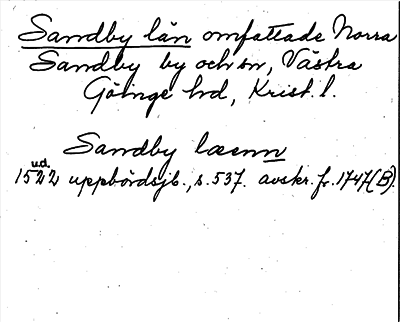 Sandby län omfattade Norra
Sandby by och sn, Västra
Göinge hd, Krist. l.
Sandby læenn
u.d.
1522 uppbördsjb., s. 537. avskr. fr. 1747 (B).